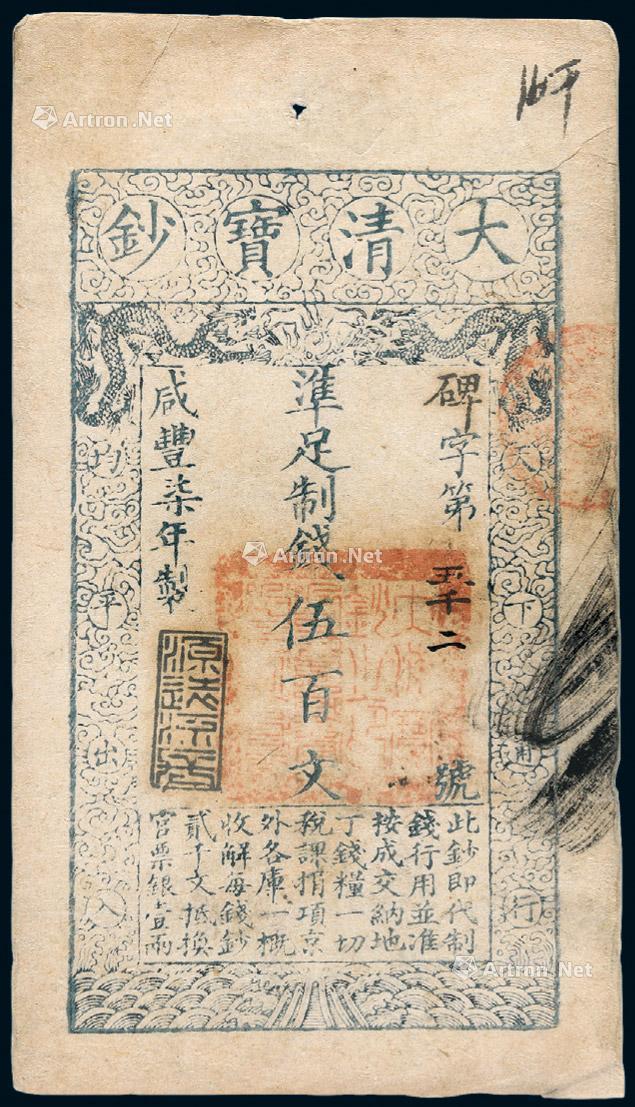 大清寶鈔
碑字第
二
號
準足制錢伍百文
咸豐柒年製
天下通行
均平出入
源遠流長
此鈔即代制
錢行用並准
按成交納地
丁錢糧一切
稅課捐項京
外各庫一概
收解每錢鈔
貳千文抵換
官票銀壹兩
Artron.Net
Artron.Net
Artron.Net
Artron.Net